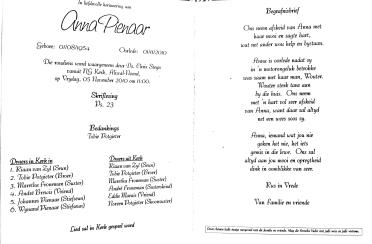 In liefdevolle herinnering aan
Anna Pienaar
Gebore: 01/08/1954
Oorlede: 01/11/2010
Die roudiens word waargeneem deur Ds. Chris Steyn
vanuit NG Kerk,
op Vrydag, 05 November 2010 om 11:00.
Skriflesing
Ps. 23
Bedankings
Tobie Potgieter
Draers in Kerk in
1. Kiaan van Zyl (Seun)
2. Tobie Potgieter (Broer)
3. Maretha Froneman (Suster)
4. André Brenzo (Vriend)
5. Johannes Pienaar (Stiefseun)
6. Wynand Pienaar (Stiefseun)
Draers uit Kerk
Kiaan van Zyl (Seun)
Tobie Potgieter (Broer)
Maretha Froneman (Suster)
André Froneman
Eddie (Vriend)
Potgieter (Skoonsuster)
Lied sal in Kerk gespeel word
Begrafnisbrief
Ons neem afskeid van Anna met
haar mooi en sagte hart,
wat net ander wou help en bystaan.
Anna is oorlede nadat sy
in 'n motorongeluk betrokke
was saam met haar man, Wouter.
Wouter sterk tans aan
by die huis. Ons neem
met 'n hart vol seer afskeid
van Anna, want daar sal altyd
net een wees soos sy.
Anna, iemand wat jou nie
geken het nie, het iets
gemis in die lewe. Ons sal
altyd aan jou mooi en opregtheid
dink in oomblikke van seer.
Rus in Vrede
Van Familie en vriende